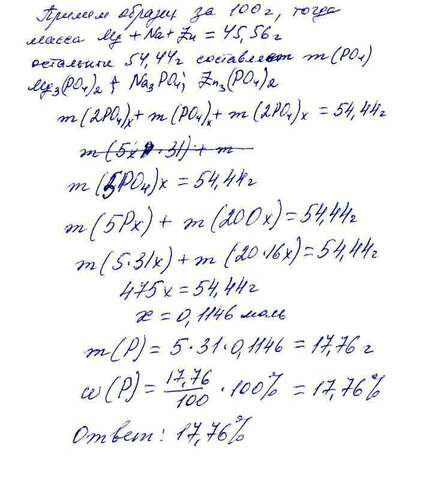 Примем образец за 100г, тогда
масса Mg + Na + Zn = 45,56г
остальные 54,44г составляет m(PO4)
Mg3(PO4)2 ; Na3PO4; Zn3(PO4)2
m(2PO4)x + m(PO4)x + m(2PO4)x = 54,44г
m(5x P · 31) + m
m(5PO4)x = 54,44г
m(5Px) + m(20Ox) = 54,44г
m(5·31x) + m(20·16x) = 54,44г
475x = 54,44г
x = 0,1146 моль
m(P) = 5·31·0,1146 = 17,76 г
ω(P) = 17,76/100 · 100% = 17,76%
Ответ: 17,76%